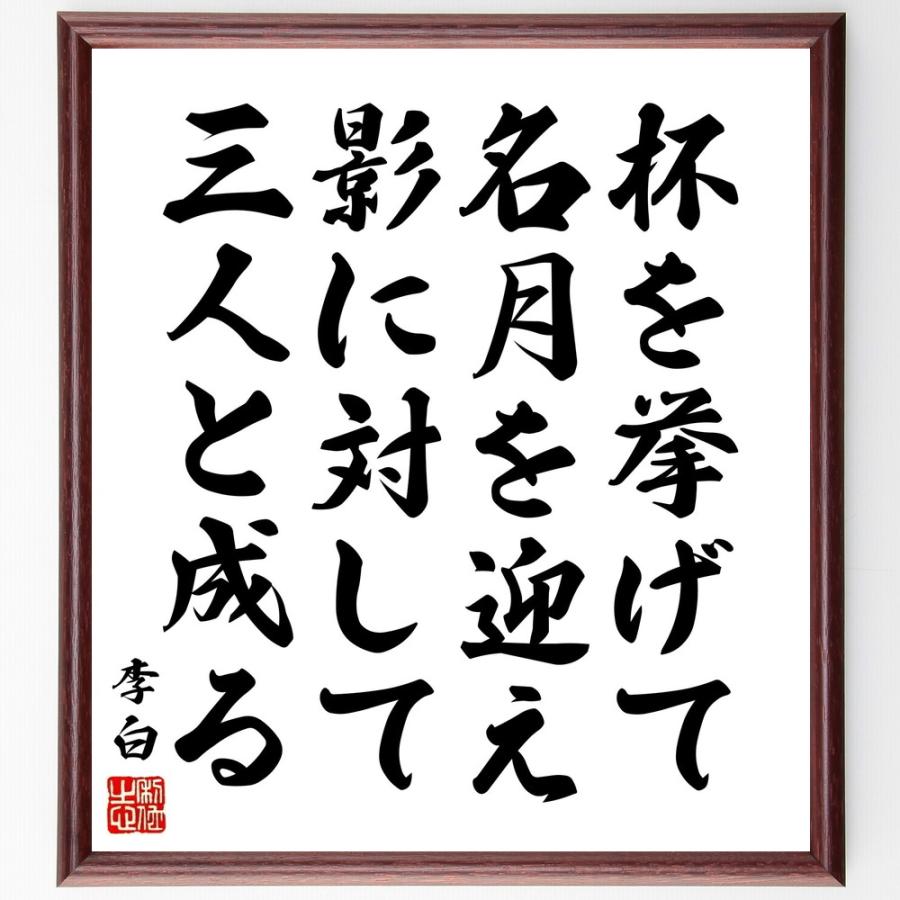 杯を挙げて
名月を迎え
影に対して
三人と成る
李白